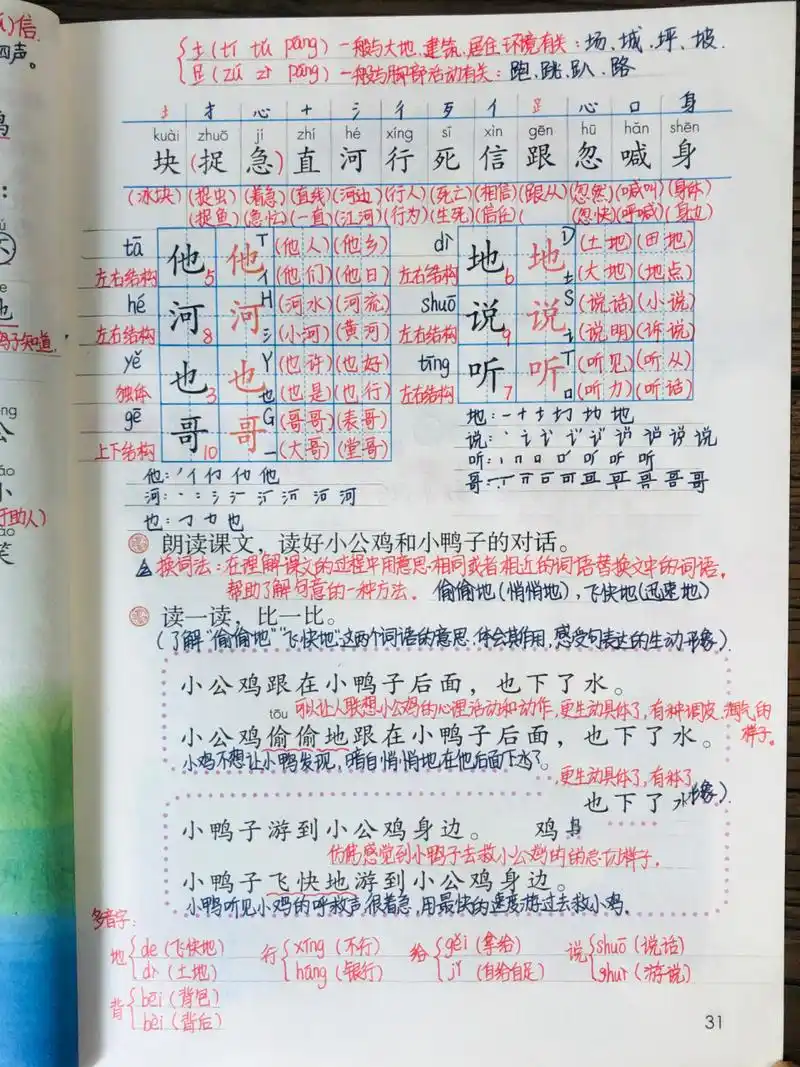 信.
四声。
土(tí tǔ páng) 一般与大地、建筑、居住环境有关:场、城、坪、坡.
足(zú zì páng) 一般与脚部活动有关:跑、跳、趴、路
土 扌 心 十 氵 彳 歹 亻 足 心 口 身
kuài zhuō jí zhí hé xíng sǐ xìn gēn hū hǎn shēn
块(捉急)直河行死信跟忽喊身
(冰块)(捉虫)(着急)(直线)(河边)(行人)(死亡)(相信)(跟从)(忽然)(喊叫)(身体)
(捉鱼)(急忙)(一直)(江河)(行为)(生死)(信任)( (忽快)(呼喊)(身边)
tā 他5 他 T (他人)(他乡) dì 地6 地 D (土地)(田地)
左右结构 亻 (他们)(他日) 左右结构 土 (大地)(地点)
hé 河8 河 H (河水)(河流) shuō 说9 说 S (说话)(小说)
左右结构 氵 (小河)(黄河) 左右结构 讠 (说明)(诉说)
yě 也3 也 Y (也许)(也好) tīng 听7 听 T (听见)(听从)
独体 也 (也是)(也行) 左右结构 口 (听力)(听话)
gē 哥10 哥 G (哥哥)(表哥)
上下结构 一 (大哥)(堂哥)
地:一 十 土 圠 地 地
说:
听:
哥:
他:
河:
也:
朗读课文,读好小公鸡和小鸭子的对话。
换词法:在理解课文的过程中用意思相同或者相近的词语替换文中的词语,
帮助了解句意的一种方法. 偷偷地(悄悄地),飞快地(迅速地)
读一读,比一比。
(了解“偷偷地”“飞快地”这两个词语的意思.体会其作用,感受句表达的生动形象).
小公鸡跟在小鸭子后面,也下了水。
tōu 可以让人联想小公鸡的心理活动和动作,更生动具体了,有种调皮、淘气的
样子。
小公鸡偷偷地跟在小鸭子后面,也下了水。
小鸡不想让小鸭发现,暗自悄悄地在他后面下水了。
更生动具体了,有种了,
也下了水 形象).
小鸭子游到小公鸡身边。 鸡身
仿佛感觉到小鸭子去救小公鸡的的急切样子.
小鸭子飞快地游到小公鸡身边。
小鸭听见小鸡的呼救声很着急,用最快的速度地过去救小鸡.
多音字:
地 de (飞快地) dì (土地)
行 xíng (不行) háng (银行)
给 gěi (拿给) jǐ (自给自足)
说 shuō (说话) shuì (游说)
背 bēi (背包) bèi (背后)
31